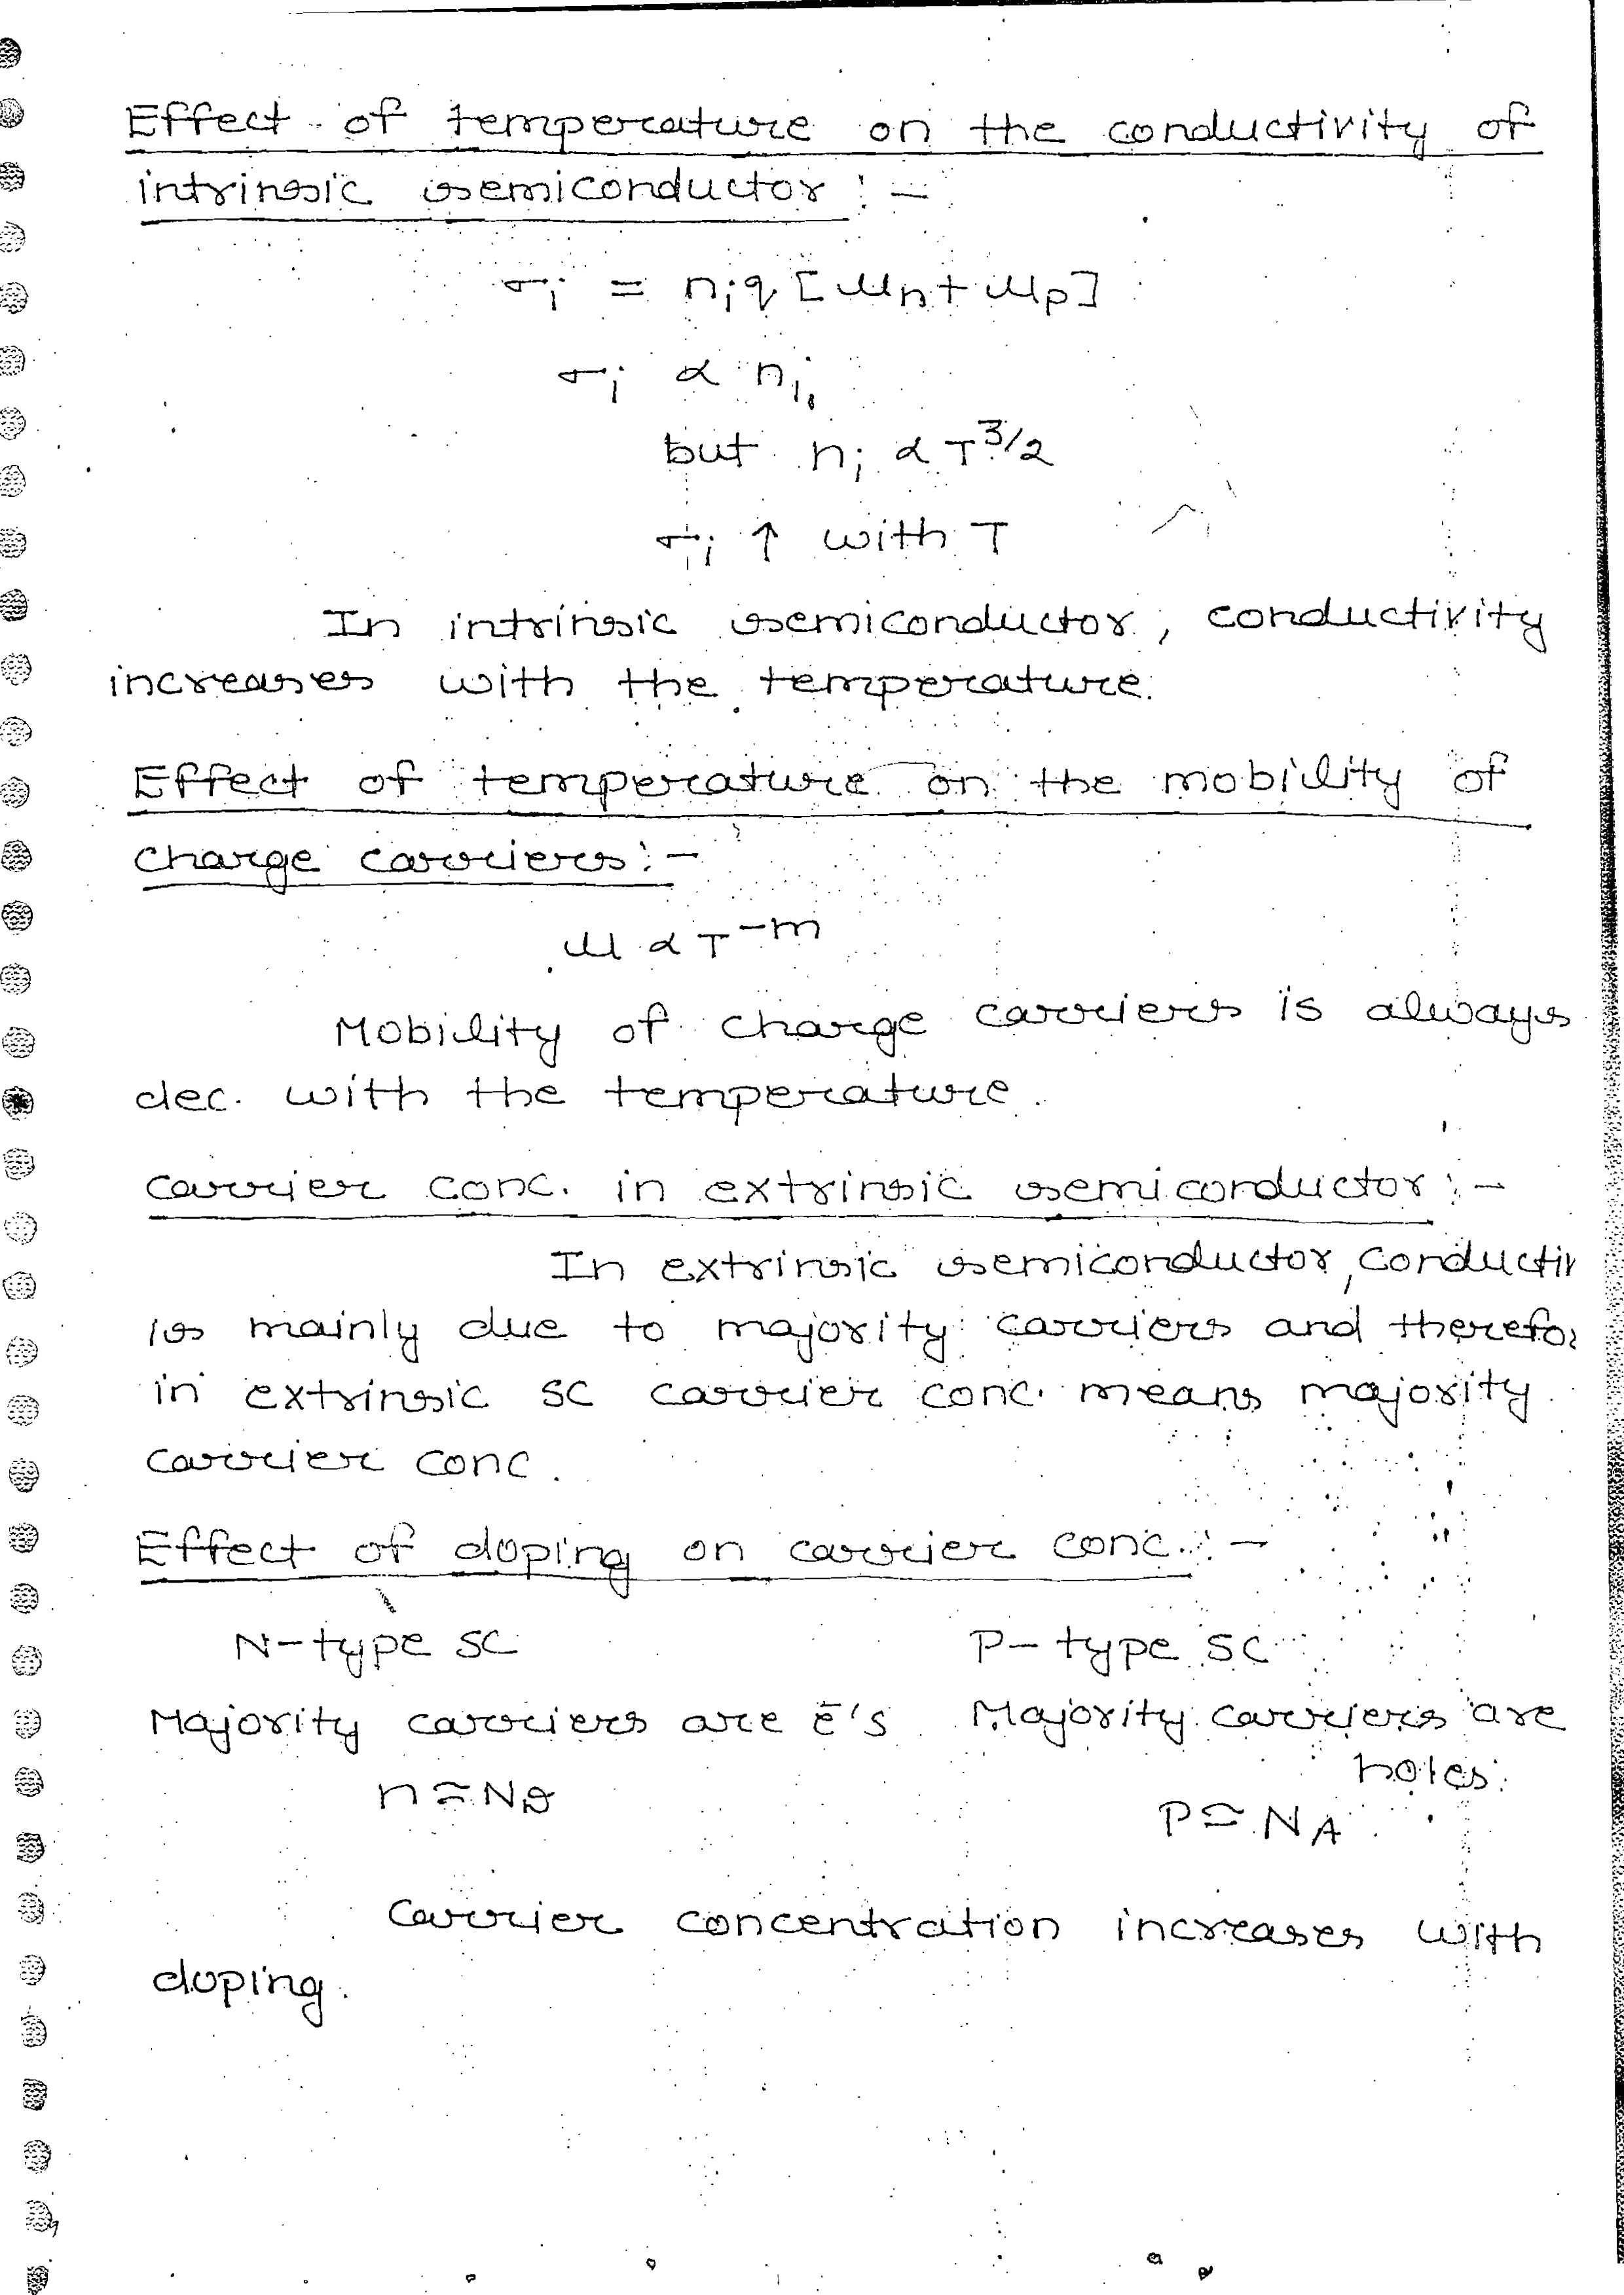 Effect of temperature on the conductivity of
intrinsic semiconductor :-
σi = niq [μn + μp]
σi ∝ ni
but ni ∝ T^3/2
σi ↑ with T
In intrinsic semiconductor, conductivity
increases with the temperature.
Effect of temperature on the mobility of
charge carriers :-
μ ∝ T^-m
Mobility of charge carriers is always
dec. with the temperature.
carrier conc. in extrinsic semiconductor :-
In extrinsic semiconductor, conductiv
is mainly due to majority carriers and therefor
in extrinsic SC carrier conc. means majority
carrier conc.
Effect of doping on carrier conc. :-
N-type SC P-type SC
Majority carriers are ē's Majority carriers are
holes.
n ≃ ND
P ≃ NA
Carrier concentration increases with
doping.